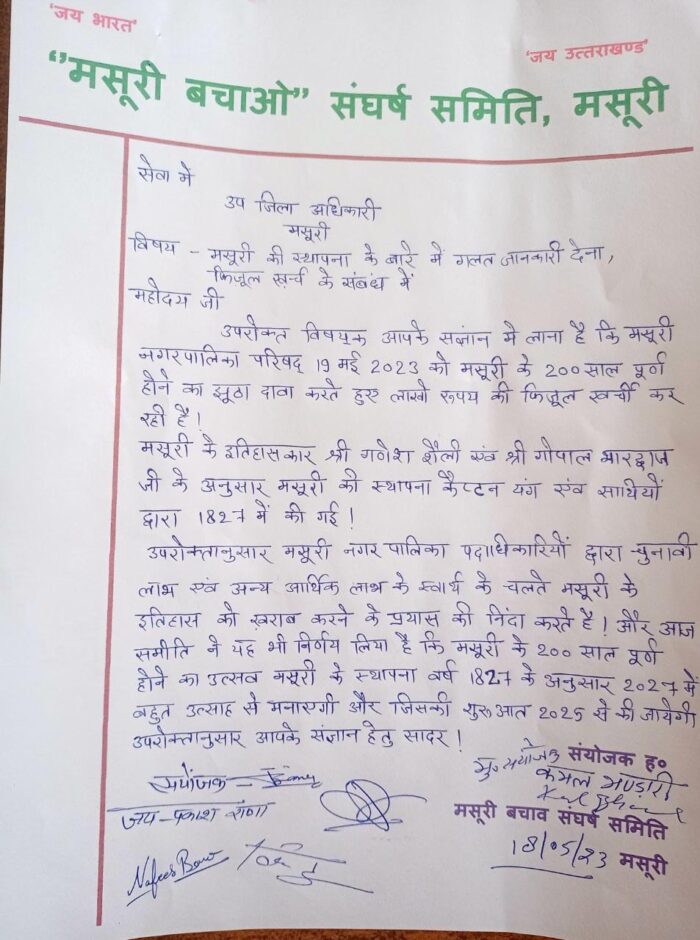 'जय भारत'
'जय उत्तराखण्ड'
"मसूरी बचाओ" संघर्ष समिति, मसूरी
सेवा में
उप जिला अधिकारी
मसूरी
विषय - मसूरी की स्थापना के बारे में गलत जानकारी देना,
फिजूल खर्च के संबंध में
महोदय जी
उपरोक्त विषयक आपके संज्ञान में लाना है कि मसूरी
नगरपालिका परिषद् 19 मई 2023 को मसूरी के 200 साल पूर्ण
होने का झूठा दावा करते हुए लाखो रूपय की फिजूल खर्ची कर
रही है!
मसूरी के इतिहासकार श्री गणेश शैली एवं श्री गोपाल भारद्वाज
जी के अनुसार मसूरी की स्थापना कैप्टन यंग एंव साथियों
द्वारा 1827 में की गई!
उपरोक्तानुसार मसूरी नगरपालिका पदाधिकारियों द्वारा चुनावी
लाभ एंव अन्य आर्थिक लाभ के स्वार्थ के चलते मसूरी के
इतिहास को ख़राब करने के प्रयास की निंदा करते है! और आज
समीति ने यह भी निर्णय लिया है कि मसूरी के 200 साल पूर्ण
होने का उत्सव मसूरी के स्थापना वर्ष 1827 के अनुसार 2027 में
बहुत उत्साह से मनाएगी और जिसकी शुरूआत 2025 से की जायेगी
उपरोक्तानुसार आपके संज्ञान हेतु सादर!
संयोजक ह०
सयोजक -
कमल भण्डारी
जय-प्रकाश राणा
मसूरी बचाव संघर्ष समिति
18/05/23 मसूरी
Nafees